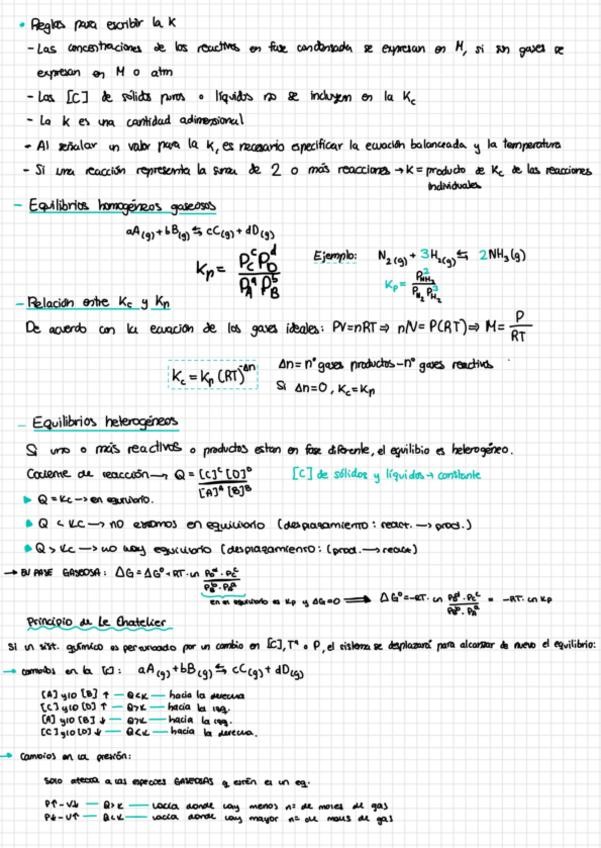 • Reglas para escribir la K
- Las concentraciones de los reactivos en fase condensada se expresan en M, si son gases se
expresan en M o atm
- Las [C] de sólidos puros o líquidos no se incluyen en la Kc
- La K es una cantidad adimensional
- Al señalar un valor para la K, es necesario especificar la ecuación balanceada y la temperatura
- Si una reacción representa la suma de 2 o más reacciones → K = producto de Kc de las reacciones
individuales
- Equilibrios homogéneos gaseosos
aA(g) + bB(g) ⇆ cC(g) + dD(g)
Kp = PC^c PD^d / PA^a PB^b
Ejemplo: N2(g) + 3H2(g) ⇆ 2NH3(g)
Kp = PNH3^2 / PN2 PH2^3
- Relación entre Kc y Kp
De acuerdo con la ecuación de los gases ideales: PV=nRT ⇒ n/V = P(RT) ⇒ M = P/RT
Kc = Kp (RT)^-Δn
Δn = nº gases productos - nº gases reactivos
Si Δn=0, Kc=Kp
- Equilibrios heterogéneos
Si uno o más reactivos o productos estan en fase diferente, el equilibio es heterogéneo.
Cociente de reacción → Q = [C]^c [D]^D / [A]^A [B]^B [C] de sólidos y líquidos → constante
▶ Q = Kc → en equilibrio.
▶ Q < Kc → no estamos en equilibrio (desplazamiento: react. → prod.)
▶ Q > Kc → no hay equilibrio (desplazamiento: (prod. → react)
→ EN FASE GASEOSA: ΔG = ΔG° + RT · ln PD^d · PC^c / PB^b · PA^a
en el equilibrio es Kp y ΔG=0 ⟹ ΔG° = -RT · ln PD^d · PC^c / PB^b · PA^a = -RT · ln Kp
Principio de Le Chatelier
Si un sist. químico es perturbado por un cambio en [C], Tª o P, el sistema se desplazará para alcanzar de nuevo el equilibrio:
→ cambios en la [C]: aA(g) + bB(g) ⇆ cC(g) + dD(g)
[A] y/o [B] ↑ — Q<K — hacia la derecha
[C] y/o [D] ↑ — Q>K — hacia la izq.
[A] y/o [B] ↓ — Q>K — hacia la izq.
[C] y/o [D] ↓ — Q<K — hacia la derecha.
→ Cambios en la presión:
Solo afecta a las especies GASEOSAS q estén es un eq.
P↑ - V↓ — Q>K — hacia donde hay menos nº de moles de gas
P↓ - V↑ — Q<K — hacia donde hay mayor nº de moles de gas